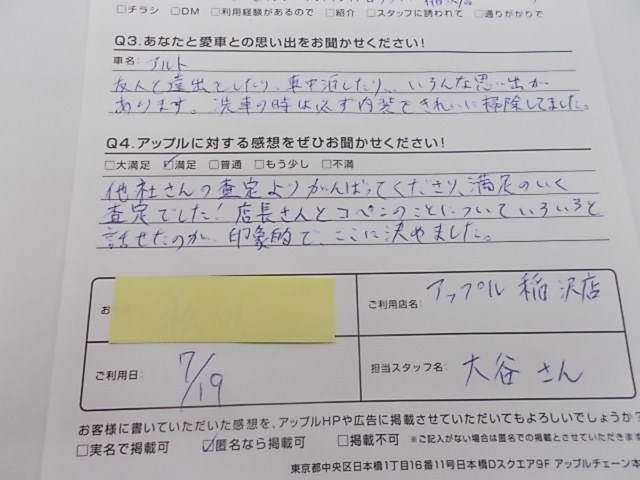 □チラシ □DM □利用経験があるので □紹介 □スタッフに誘われて □通りがかりで
Q3.あなたと愛車との思い出をお聞かせください!
車名: アルト
友人と遠出をしたり、車中泊したり、いろんな思い出が
あります。洗車の時は必ず内装をきれいに掃除してました。
Q4.アップルに対する感想をぜひお聞かせください!
□大満足 ☑満足 □普通 □もう少し □不満
他社さんの査定よりがんばってくださり、満足のいく
査定でした!店長さんとコペンのことについていろいろと
話せたのが、印象的で、ここに決めました。
お
ご利用店名: アップル 稲沢店
ご利用日: 7/19
担当スタッフ名: 大谷さん
お客様に書いていただいた感想を、アップルHPや広告に掲載させていただいてもよろしいでしょうか?
□実名で掲載可 ☑匿名なら掲載可 □掲載不可 ※ご記入がない場合は匿名での掲載とさせていただきます
東京都中央区日本橋1丁目16番11号日本橋Dスクエア9F アップルチェーン本